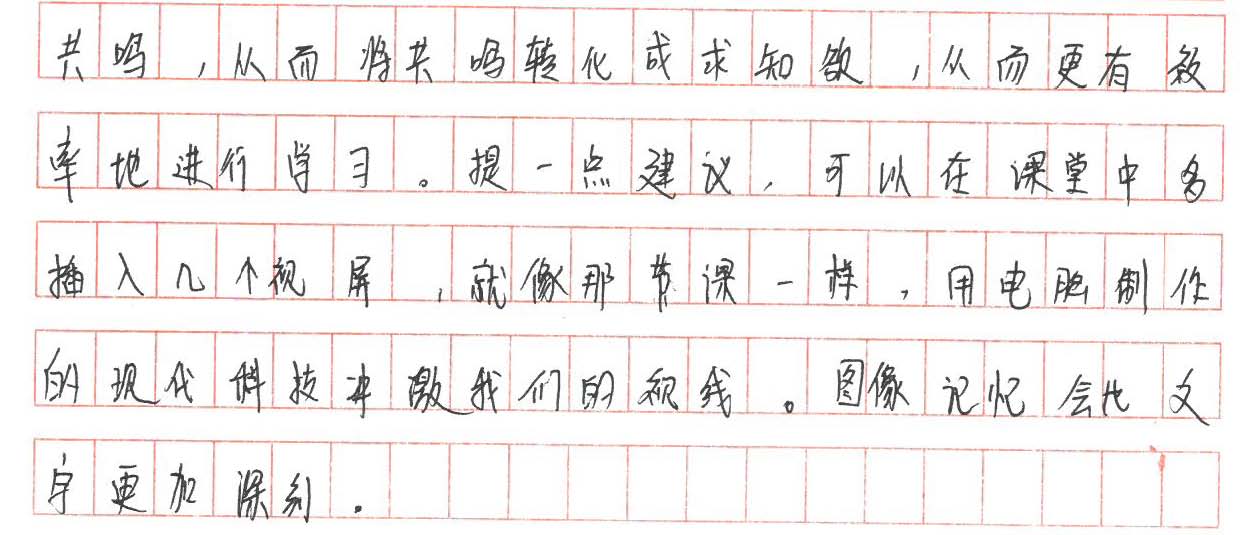 共鸣，从而将共鸣转化成求知欲，从而更有效
率地进行学习。提一点建议，可以在课堂中多
插入几个视屏，就像那节课一样，用电脑制作
的现代科技冲激我们的视线。图像记忆会比文
字更加深刻。